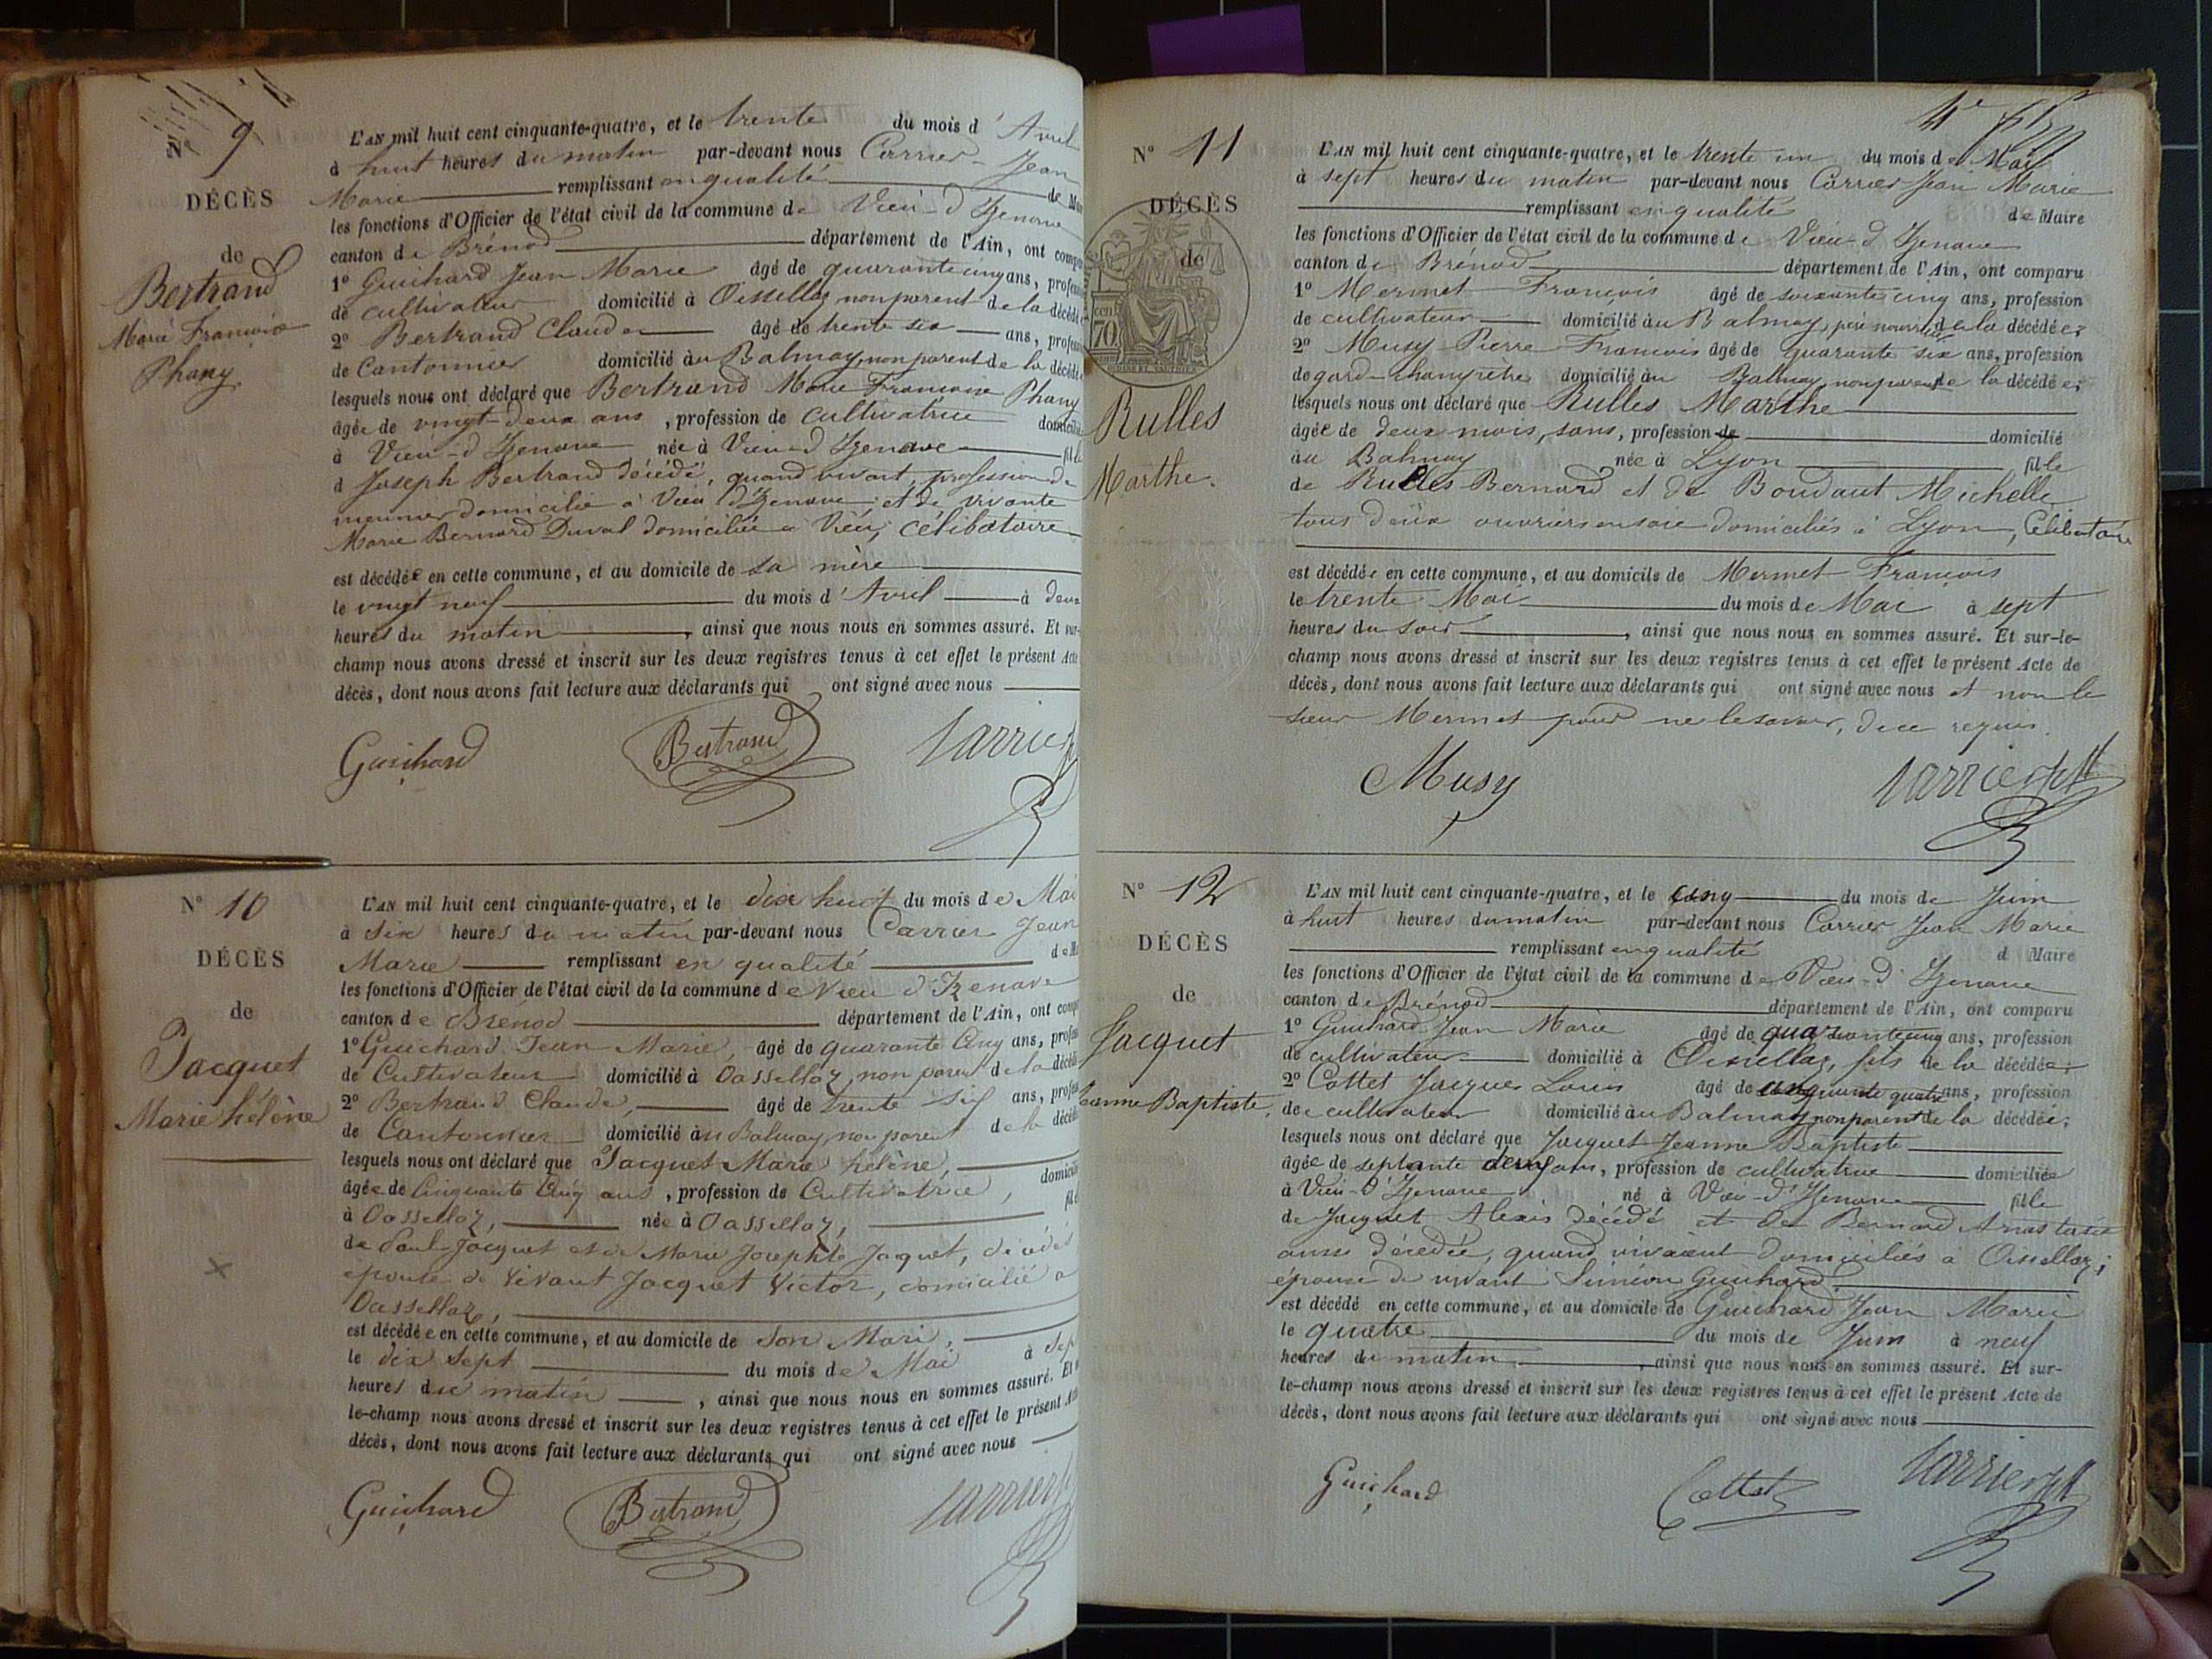 N° 9
DÉCÈS
de
Bertrand
Marie Françoise
Phany.
L'AN mil huit cent cinquante-quatre, et le trente du mois d'Avril
à huit heures du matin par-devant nous Carrier Jean
Marie remplissant en qualité de
les fonctions d'Officier de l'état civil de la commune de Vieu-d'Izenave
canton de Brénod département de l'Ain, ont
1° Guichard Jean Marie âgé de quarante cinq ans,
de cultivateur domicilié à Oissellaz, non parent de la
2° Bertrand Claude âgé de trente six ans,
de Cantonnier domicilié au Balmay, non parent de la
lesquels nous ont déclaré que Bertrand Marie Françoise Phany
âgée de vingt-deux ans, profession de cultivatrice
à Vieu-d'Izenave née à Vieu-d'Izenave
d Joseph Bertrand décédé, quand vivant, profession de
meunier domicilié à Vieu d'Izenave; et de vivante
Marie Bernard Duval domiciliée à Vieu, célibataire
est décédée en cette commune, et au domicile de sa mère
le vingt neuf du mois d'Avril à deux
heures du matin, ainsi que nous nous en sommes assuré. Et sur-
champ nous avons dressé et inscrit sur les deux registres tenus à cet effet le présent Acte
décès, dont nous avons fait lecture aux déclarants qui ont signé avec nous
Guichard Bertrand Carrier
N° 10
DÉCÈS
de
Jacquet
Marie hélène
L'AN mil huit cent cinquante-quatre, et le dix huit du mois de Mai
à six heures du matin par-devant nous Carrier Jean
Marie remplissant en qualité
les fonctions d'Officier de l'état civil de la commune de Vieu d'Izenave
canton de Brénod département de l'Ain, ont
1° Guichard Jean Marie, âgé de quarante Cinq ans,
de Cultivateur domicilié à Oassellaz, non parent de la
2° Bertrand Claude, âgé de trente six ans,
de Cantonnier domicilié au Balmay, non parent de la
lesquels nous ont déclaré que Jacquet Marie hélène,
âgée de Cinquante Cinq ans, profession de Cultivatrice,
à Oassellaz, née à Oassellaz,
de Paul Jacquet et de Marie Josephte Jacquet, décédés
épouse de vivant Jacquet Victor, domicilié à
Oassellaz,
est décédée en cette commune, et au domicile de son Mari,
le dix sept du mois de Mai à
heures du matin, ainsi que nous nous en sommes assuré. Et
le-champ nous avons dressé et inscrit sur les deux registres tenus à cet effet le présent
décès, dont nous avons fait lecture aux déclarants qui ont signé avec nous
Guichard Bertrand Carrier
N° 11
DÉCÈS
de
Rulles
Marthe.
L'AN mil huit cent cinquante-quatre, et le trente un du mois de Mai
à sept heures du matin par-devant nous Carrier Jean Marie
remplissant en qualité de Maire
les fonctions d'Officier de l'état civil de la commune de Vieu-d'Izenave
canton de Brénod département de l'Ain, ont comparu
1° Mermet François âgé de soixante cinq ans, profession
de cultivateur domicilié au Balmay, père nourricier de la décédée;
2° Musy Pierre François âgé de quarante six ans, profession
de gard-champètre domicilié au Balmay, non parent de la décédée;
lesquels nous ont déclaré que Rulles Marthe
âgée de deux mois, sans, profession de domicilié
au Balmay née à Lyon fille
de Rulles Bernard et de Boudaut Michelle
tous deux ouvriers en soie domiciliés à Lyon, Célibataire
est décédée en cette commune, et au domicile de Mermet François
le trente Mai du mois de Mai à sept
heures du soir, ainsi que nous nous en sommes assuré. Et sur-le-
champ nous avons dressé et inscrit sur les deux registres tenus à cet effet le présent Acte de
décès, dont nous avons fait lecture aux déclarants qui ont signé avec nous et non le
sieur Mermet pour ne le savoir, de ce requis.
Musy Carrier
N° 12
DÉCÈS
de
Jacquet
Jeanne Baptiste.
L'AN mil huit cent cinquante-quatre, et le cinq du mois de Juin
à huit heures du matin par-devant nous Carrier Jean Marie
remplissant en qualité d Maire
les fonctions d'Officier de l'état civil de la commune de Vieu-d'Izenave
canton de Brénod département de l'Ain, ont comparu
1° Guichard Jean Marie âgé de quarante cinq ans, profession
de cultivateur domicilié à Oissellaz, fils de la décédée;
2° Cottet Jacques Louis âgé de cinquante quatre ans, profession
de cultivateur domicilié au Balmay non parent de la décédée;
lesquels nous ont déclaré que Jacquet Jeanne Baptiste
âgée de septante deux ans, profession de cultivatrice domiciliée
à Vieu-d'Izenave né à Vieu-d'Izenave fille
de Jacquet Alexis décédé et de Bernard Anastasie
aussi décédée, quand vivaient domiciliés à Oissellaz;
épouse de vivant Siméon Guichard
est décédé en cette commune, et au domicile de Guichard Jean Marie
le quatre du mois de Juin à neuf
heures du matin, ainsi que nous nous en sommes assuré. Et sur-
le-champ nous avons dressé et inscrit sur les deux registres tenus à cet effet le présent Acte de
décès, dont nous avons fait lecture aux déclarants qui ont signé avec nous
Guichard Cottet Carrier